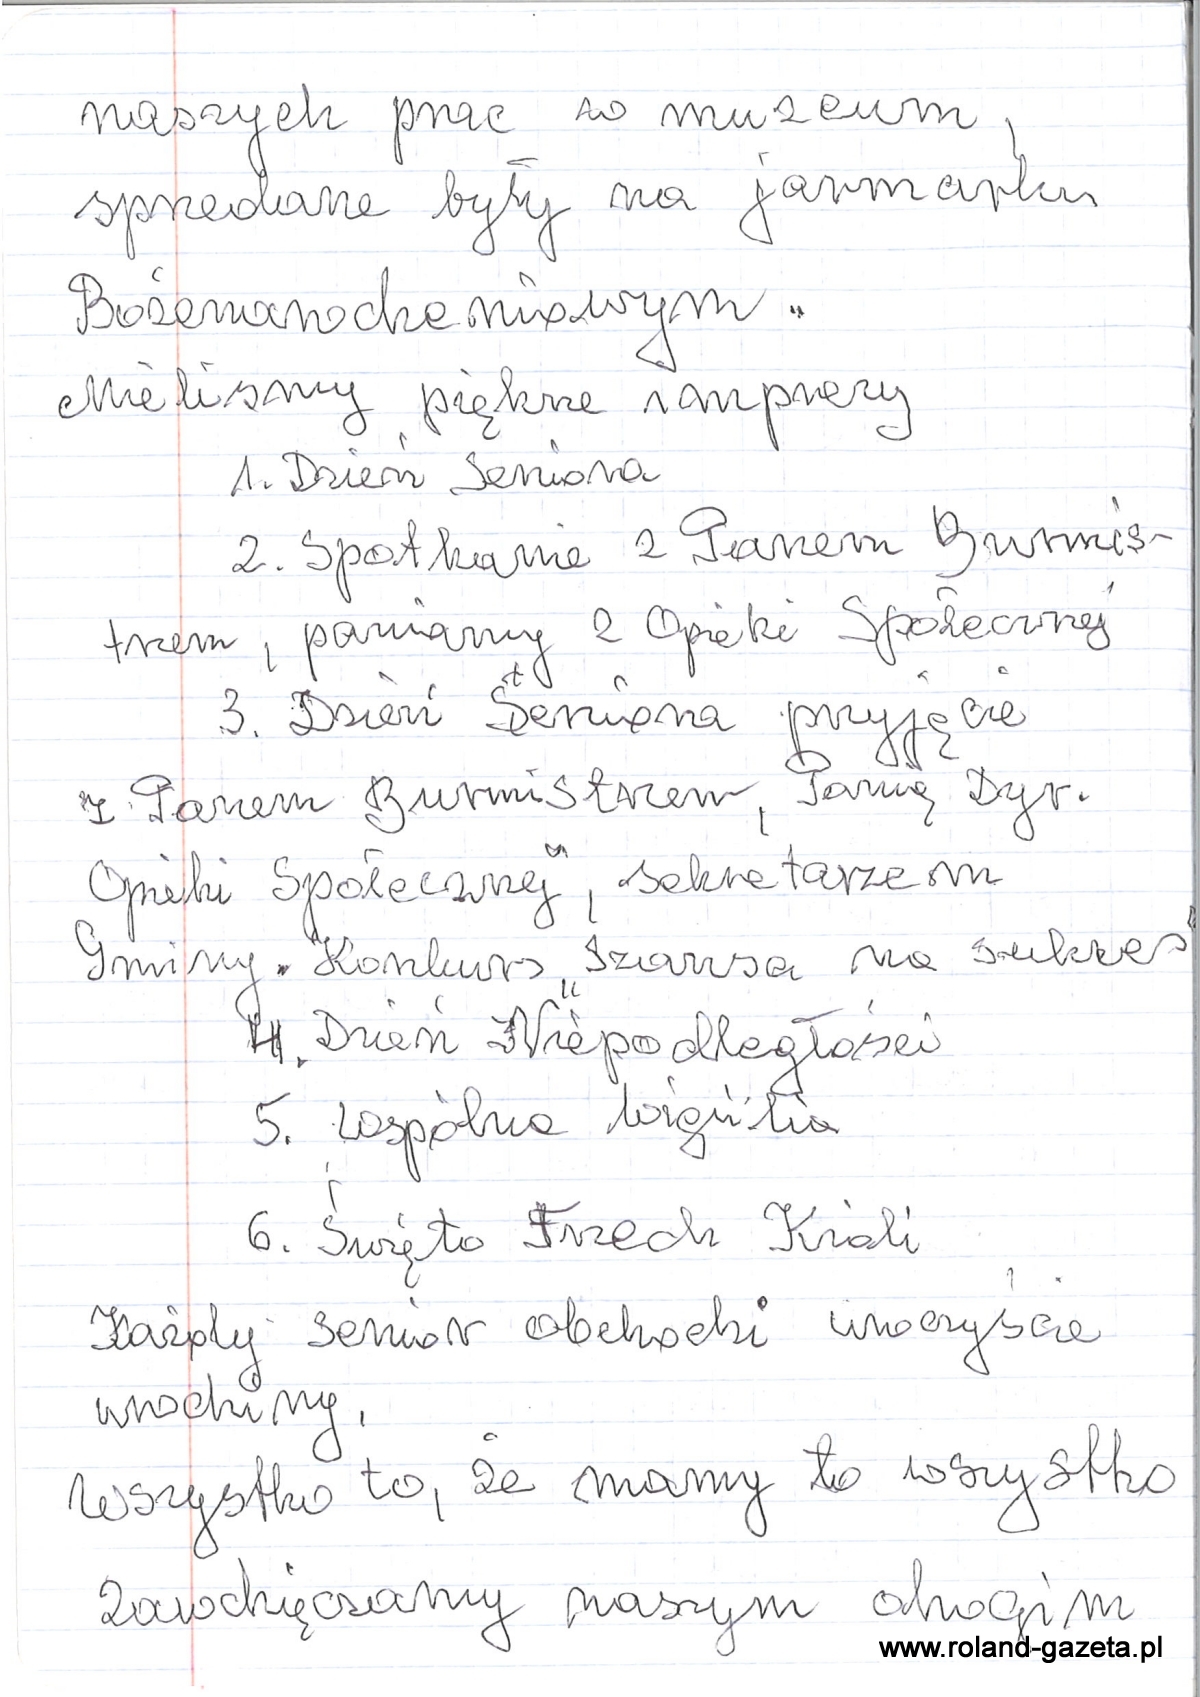 naszych prac w muzeum,
sprzedane były na jarmarku
Bożonarodzeniowym.
Mieliśmy piękne imprezy
1. Dzień Seniora
2. Spotkanie z Panem Burmis-
trzem, paniamy z Opieki Społecznej
3. Dzień Seniora przyjęcie
z Panem Burmistrzem, Panią Dyr.
Opieki Społecznej, sekretarzem
Gminy. Konkurs "Szansa na sukces"
4. Dzień Niepodległości
5. wspólna wigilia
6. Święto Trzech Króli
Każdy senior obchodzi uroczyście
urodziny.
Wszystko to, że mamy to wszystko
zawdzięczamy naszym drogim
www.roland-gazeta.pl